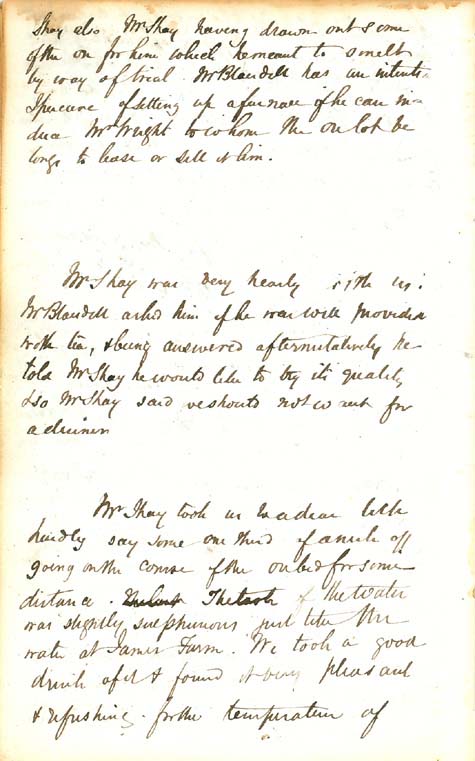 Shay also Mr Shay having drawn out some
of the ore for him which he meant to smelt
by way of trial. Mr Blaudell has an intenti-
of setting up a furnace if he can in-
duce Mr Wright to whom the ore lot be
longs to lease or sell it him.
Mr Shay was very nearly with us:
Mr Blaudell asked him if he was well provided
with tea, & being answered affirmatively he
told Mr Shay he would like to try its quality
& so Mr Shay said we should not want for
a dinner
Mr Shay took us to a dear little
say some one third of a mile off
going on the course of the ore bed for some
distance. The taste of the water
was slightly sulphurous just like the
water at James Farm. We took a good
drink of it & found it very pleasant
& refreshing. for the temperature of